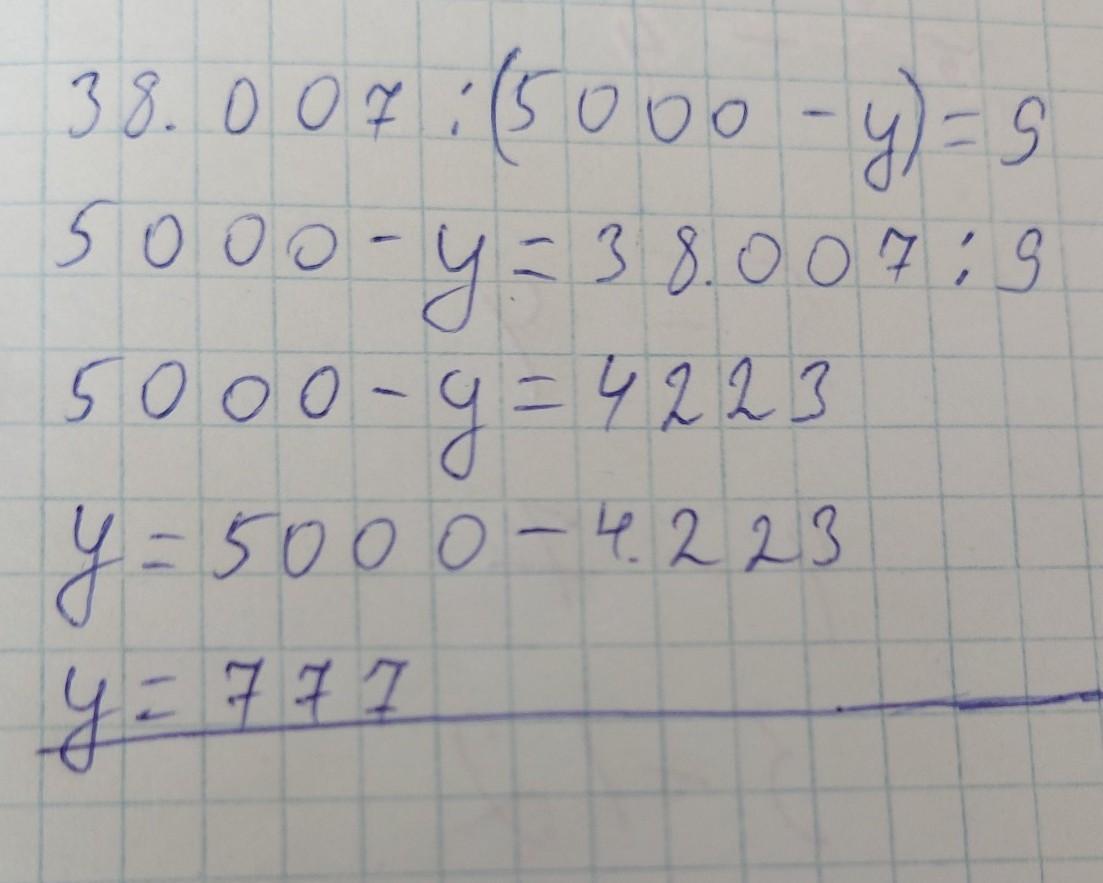 38.007:(5000-y)=9
5000-y=38.007:9
5000-y=4223
y=5000-4.223
y=777